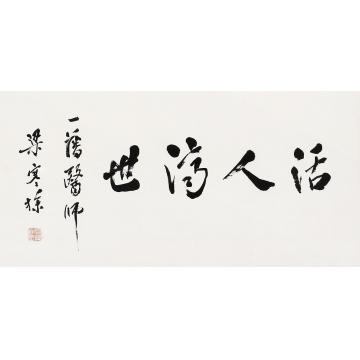 活人濟世
一藩醫師
梁寒操